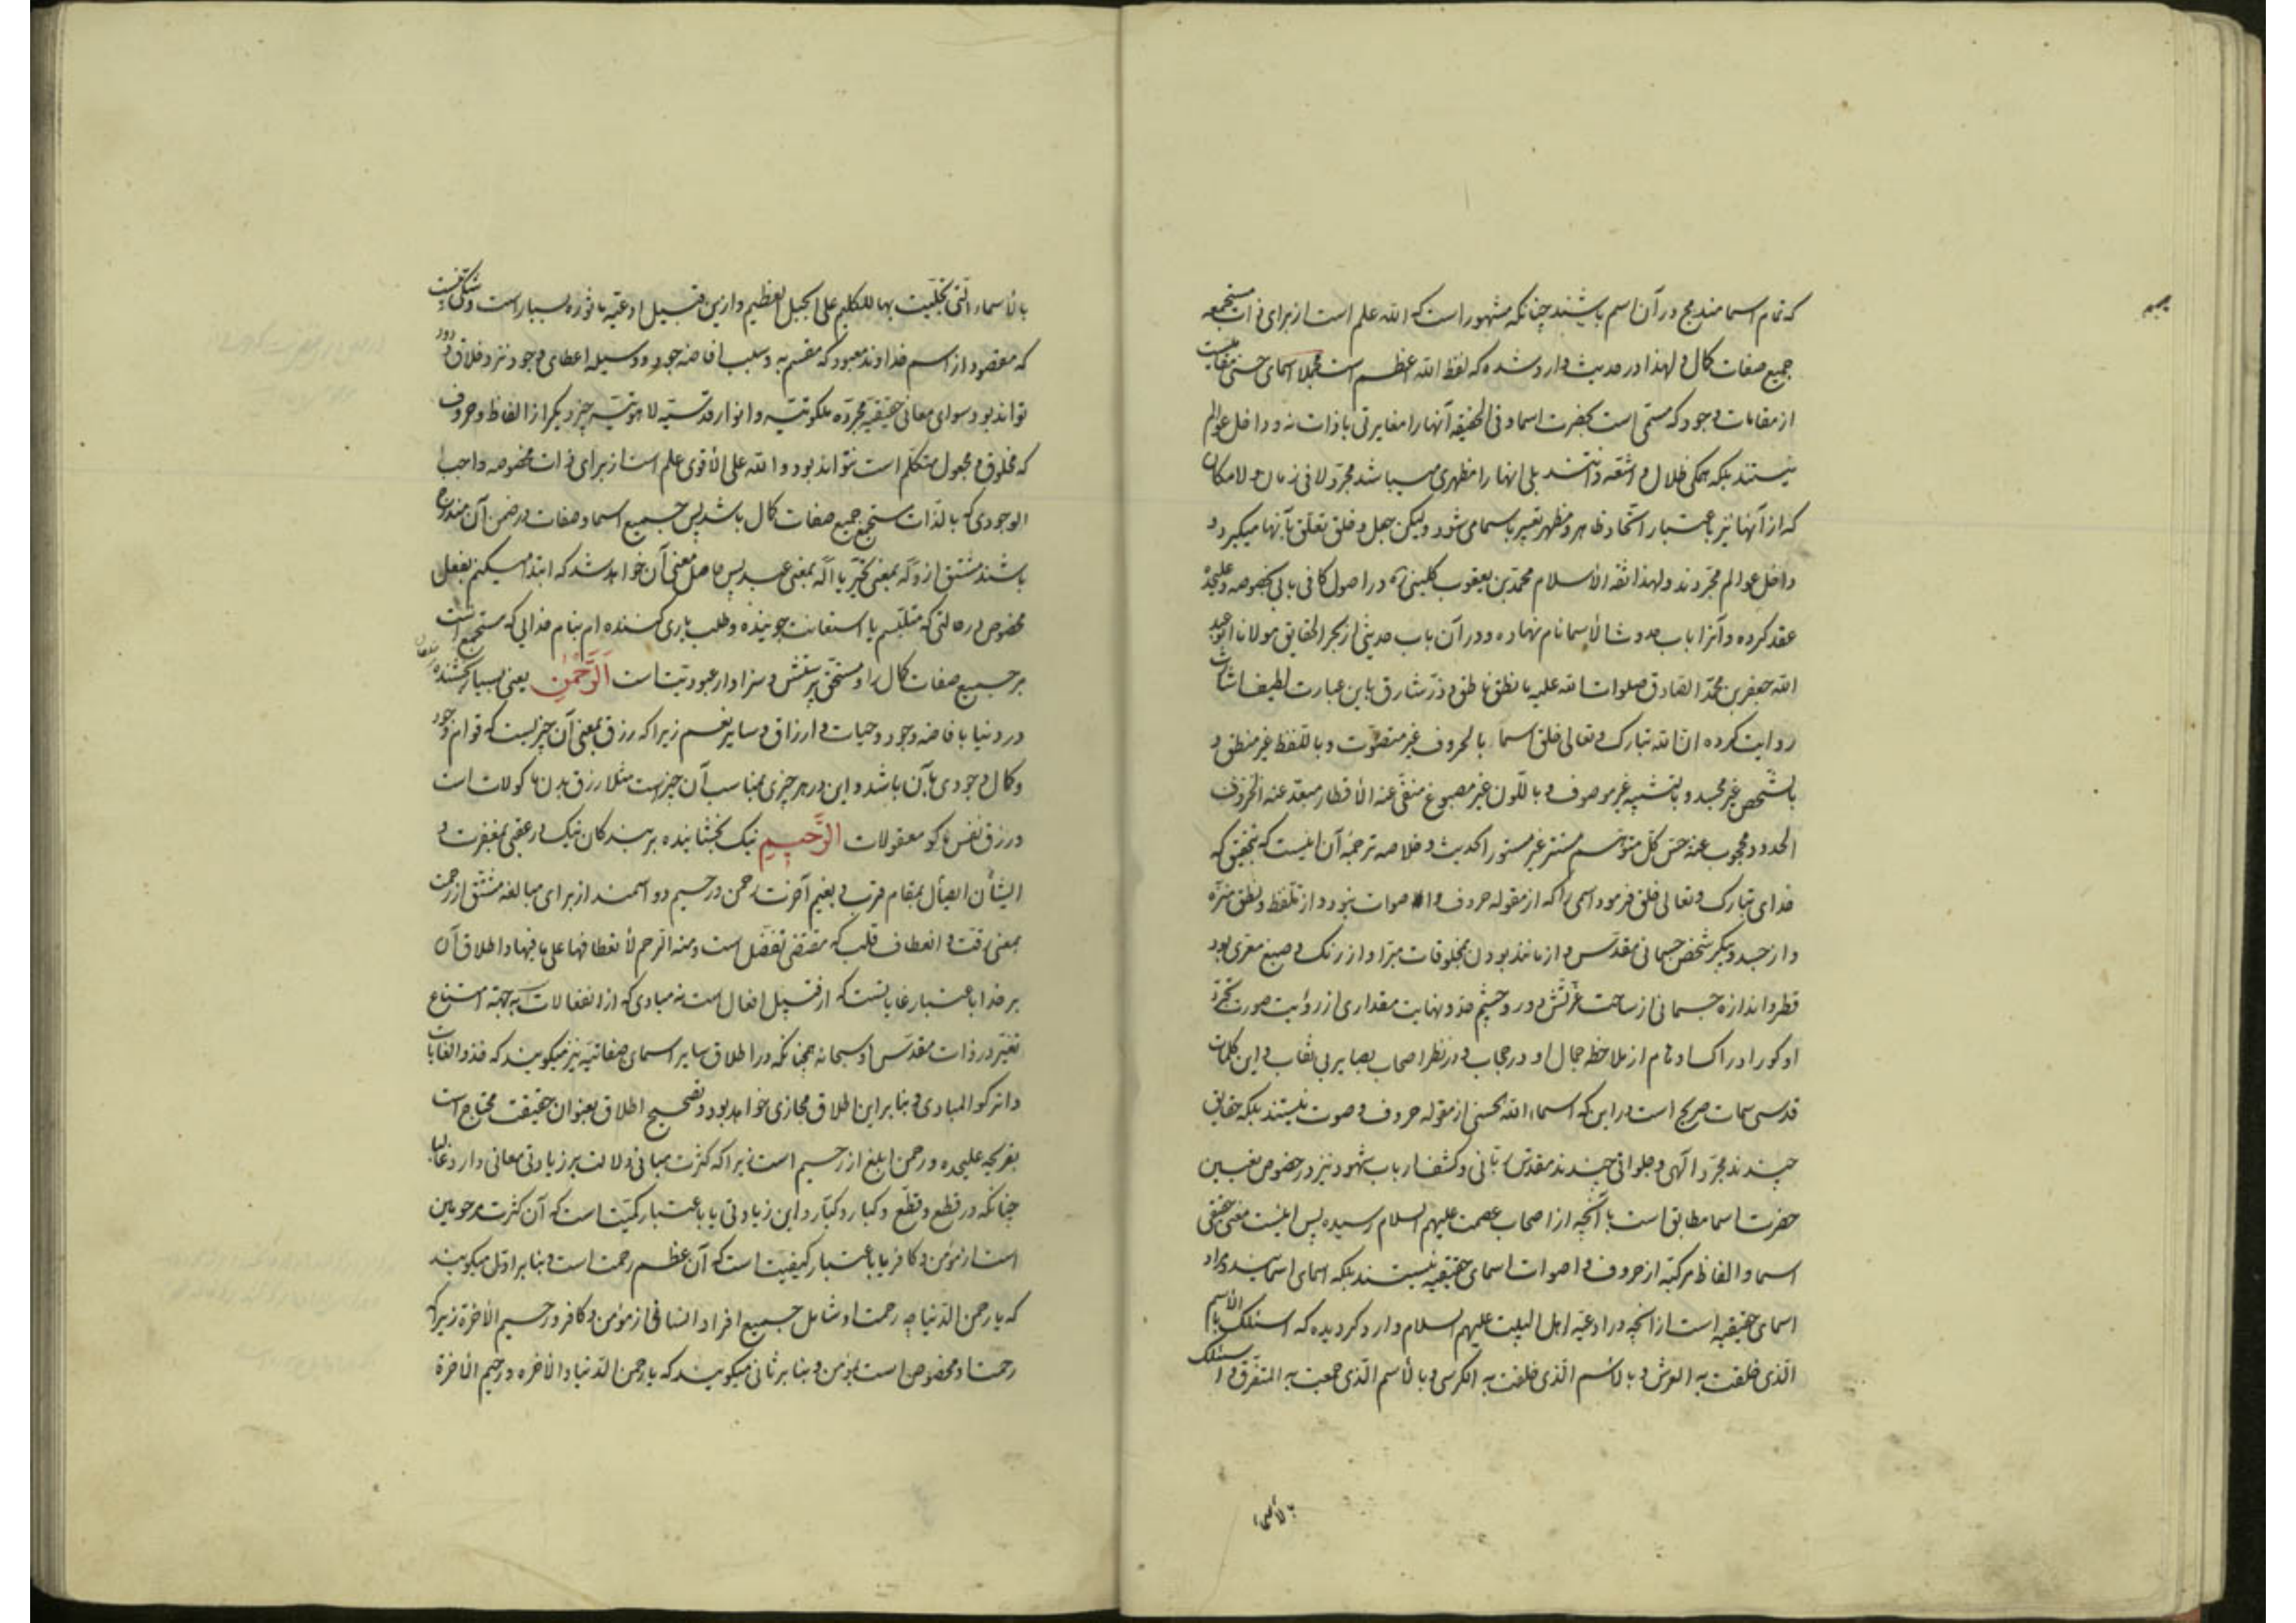 که تمام اسما مندمج در آن اسم باشند چنانکه مشهور است که الله علم است از برای ذات مستجمعه
جمیع صفات کمال و لهذا در حدیث وارد شده که لفظ الله اعظم است مجملا اسمای حسنی مقامیست
از مقامات وجود که مسمی است بحضرت اسما و فی الحقیقه آنها را مغایرتی با ذات نه و داخل عوالم
نیستند بلکه همگی ظلال و اشعه ذاتند بلی آنها را مظهری میباشد مجرد لا فی زمان و لا مکان
که از آنها نیز باعتبار اتحاد ظاهر و مظهر تعبیر باسما می شود و لیکن جعل و خلق تعلق بآنها میگیرد و
داخل عوالم مجردند و لهذا ثقة الأسلام محمد بن یعقوب کلینی ره در اصول کافی بابی بخصوصه علیحده
عقد کرده و آنرا باب حدوث الأسما نام نهاده و در آن باب حدیثی از بحر الحقایق مولانا ابو عبد
الله جعفر بن محمد الصادق صلوات الله علیه ما نطق ناطق و ذر شارق باین عبارت لطیف اشارت
روایت کرده ان الله تبارک و تعالی خلق اسما بالحروف غیر متصوت و باللفظ غیر منطق و
بالشخص غیر مجسد و بالتشبیه غیر موصوف و باللون غیر مصبوغ منفی عنه الأقطار مبعد عنه الحروف
الحدود محجوب عنه حس کل متوهم مستتر غیر مستور الحدیث و خلاصه ترجمه آن اینست که بتحقیق که
خدای تبارک و تعالی خلق فرمود اسمی را که از مقوله حروف و اصوات نبود و از تلفظ و نطق منزه
و از جسد و پیکر شخص جسمانی مقدس و از مانند بودن بمخلوقات مبرا و از رنگ و صبغ معری بود
قطر و اندازه جسمانی از ساحت عزتش دور و چشم حد و نهایت مقداری از رؤیت صورت تجرد
او کور ادراک اوهام از ملاحظه جمال او در حجاب و در نظر اصحاب بصایر بی نقاب و این کلمات
قدسی سمات صریح است در این که اسماء الله الحسنی از مقوله حروف و صوت نیستند بلکه حقایق
چندند مجرد الهی و جلواتی چندند مقدس ربانی و کشف ارباب شهود نیز در خصوص تعیین
حضرت اسما مطابق است با آنچه از اصحاب عصمت علیهم السلام رسیده پس اینست معنی حقیقی
اسما و الفاظ مرکبه از حروف و اصوات اسمای حقیقیه نیستند بلکه اسمای اسمایند و مراد
اسمای حقیقیه است از آنچه در ادعیه اهل البیت علیهم السلام وارد گردیده که اسئلک بالأسم
الذی خلقت به العرش و بالأسم الذی خلقت به الکرسی و بالأسم الذی جمعت به المتفرق و اسئلک
بالأسماء
بالأسماء التی تجلیت بها للکلیم علی الجبل العظیم و ازین قبیل ادعیه ماثوره بسیار است و شکی نیست
که مقصود از اسم خداوند معبود که مقسم به و سبب افاضه جود و وسیله اعطای وجود نزد خلاق ودود
تواند بود سوای معانی حقیقیه مجرده ملکوتیه و انوار قدسیه لاهوتیه چیز دیگر از الفاظ و حروف
که مخلوق و مجعول متکلم است نتواند بود و الله علی الأقوی علم است از برای ذات مخصوصه واجب
الوجودی که بالذات مستجمع جمیع صفات کمال باشد پس جمیع اسما و صفات در ضمن آن مندرج
باشند مشتق از وله بمعنی تحیر یا اله بمعنی عبد پس حاصل معنی آن خواهد شد که ابتدا میکنم بفعل
مخصوص در حالتی که متلبسم یا استعانت جوینده و طلب یاری کننده ام بنام خدایی که مستجمع است
مر جمیع صفات کمال را و مستحق پرستش و سزاوار عبودیت است الرَّحْمٰنِ یعنی بسیار بخشنده
در دنیا بافاضه وجود و حیات و ارزاق و سایر نعم زیرا که رزق بمعنی آن چیزیست که قوام وجود
و کمال وجودی بآن باشد و این در هر چیزی بمناسب آن چیز است مثلا رزق بدن ماکولات است
و رزق نفس معقولات الرَّحِیمِ نیک بخشاینده بر بندگان نیک در عقبی بمغفرت و
ایشان ایصال بمقام قرب و بنعیم آخرت رحمن و رحیم دو اسمند از برای مبالغه مشتق از رحمت
بمعنی رقت و انعطاف قلب که مقتضی تفضل است و منه الرحم لأنعطافها علی ما فیها و اطلاق آن
بر خدا باعتبار غایاتست که از قبیل افعال است نه مبادی که از انفعالات بجهة امتناع
تغیر در ذات مقدس او سبحانه همچنانکه در اطلاق سایر اسمای صفاتیه نیز میگویند که خذوا الغایات
و اترکوا المبادی و بنابر این اطلاق مجازی خواهد بود و تصحیح اطلاق بعنوان حقیقت محتاج است
بقریحه علیحده و رحمن ابلغ از رحیم است زیرا که کثرت مبانی دلالت بر زیادتی معانی دارد غالبا
چنانکه در قطع و قطّع و کبار و کبّار و این زیادتی یا باعتبار کمیت است که آن کثرت مرحومین
است از مؤمن و کافر یا باعتبار کیفیت است که آن عظم رحمت است و بنابر اول میگویند
که یا رحمن الدنیا چه رحمت او شامل جمیع افراد انسانی از مؤمن و کافر و رحیم الأخرة زیرا که
رحمت او مخصوص است بمؤمن و بنابر ثانی میگویند که یا رحمن الدنیا و الأخره و رحیم الأخرة